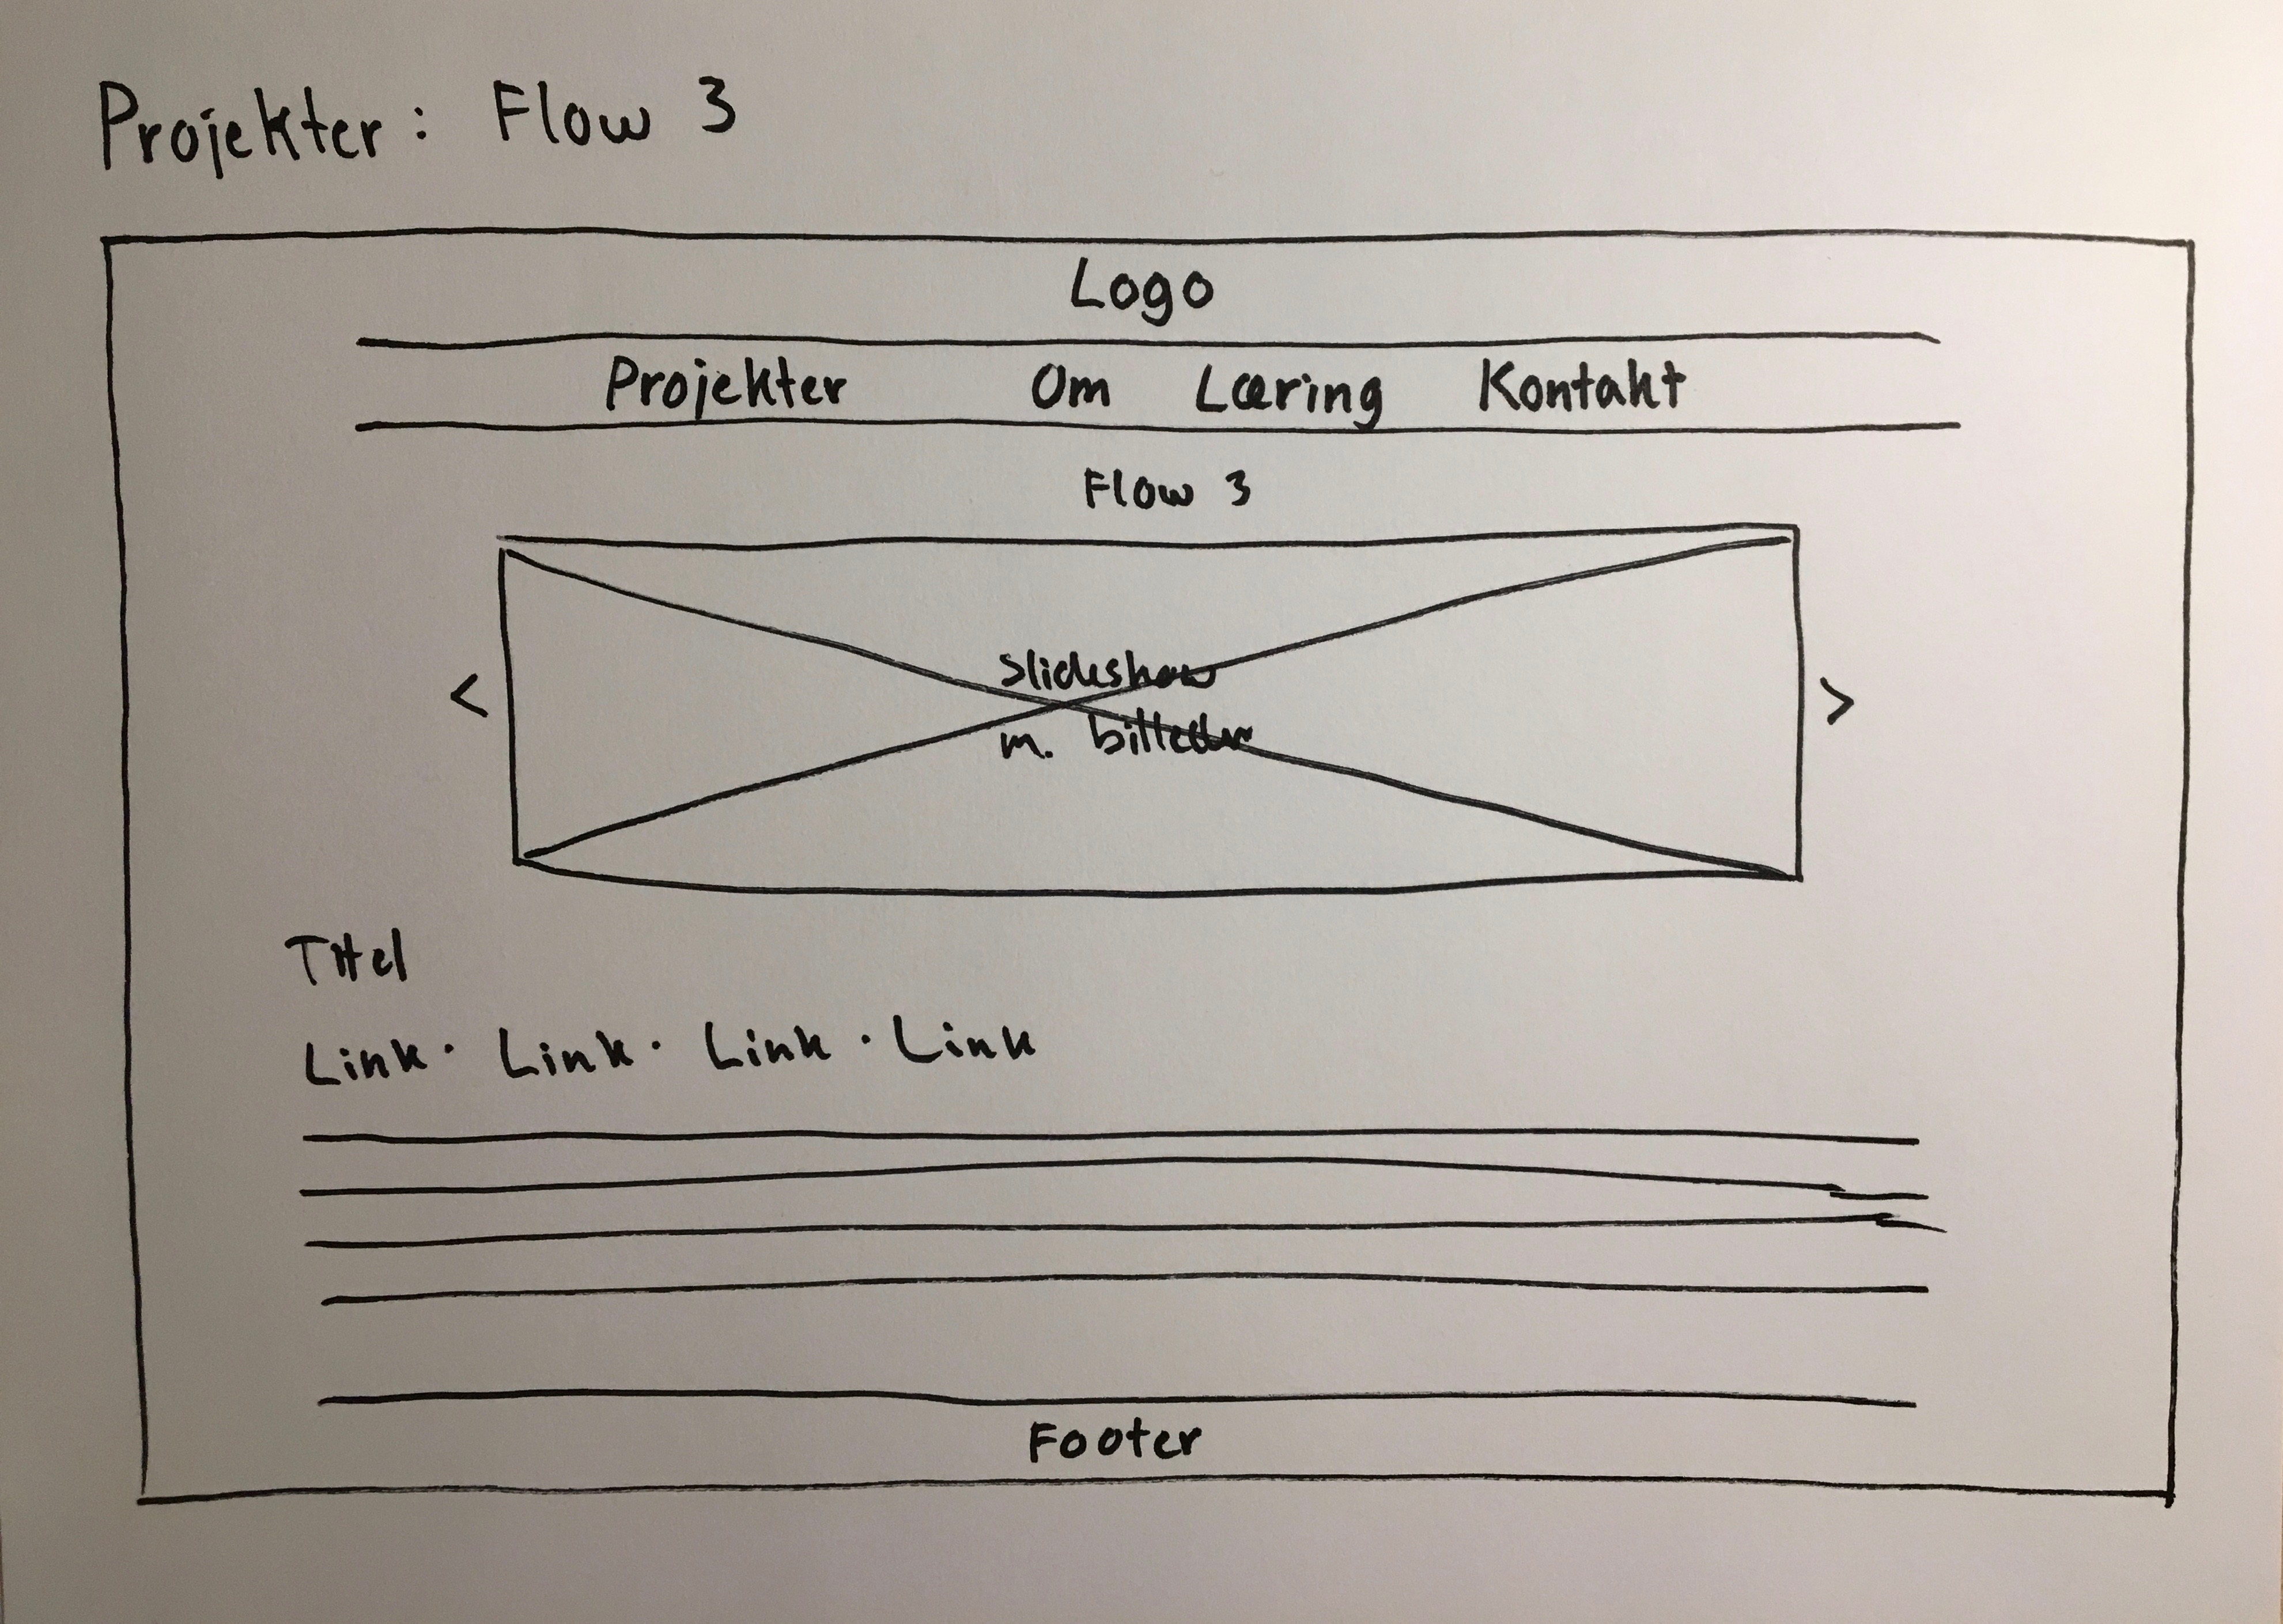 Projekter: Flow 3
Logo
Projekter Om Læring Kontakt
Flow 3
< >
Slideshow
m. billeder
Titel
Link · Link · Link · Link
Footer